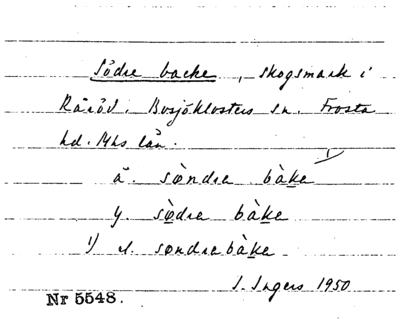 Södre backe, skogsmark i
Råröd. Bosjöklosters sn. Frosta
hd. Mhs län.
ä. sœndra bàke 1)
y. sœdra bàke
1) el. sœndrebàke.
I. Ingers 1950
Nr 5548.